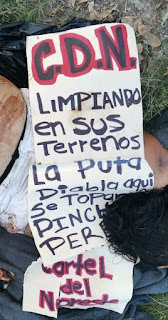 C.D.N.
LIMPIANDO
en SUS
Terrenos
La Puta
Diabla aqui
Se TOPA
PINCH
PERR
Cartel
del
N